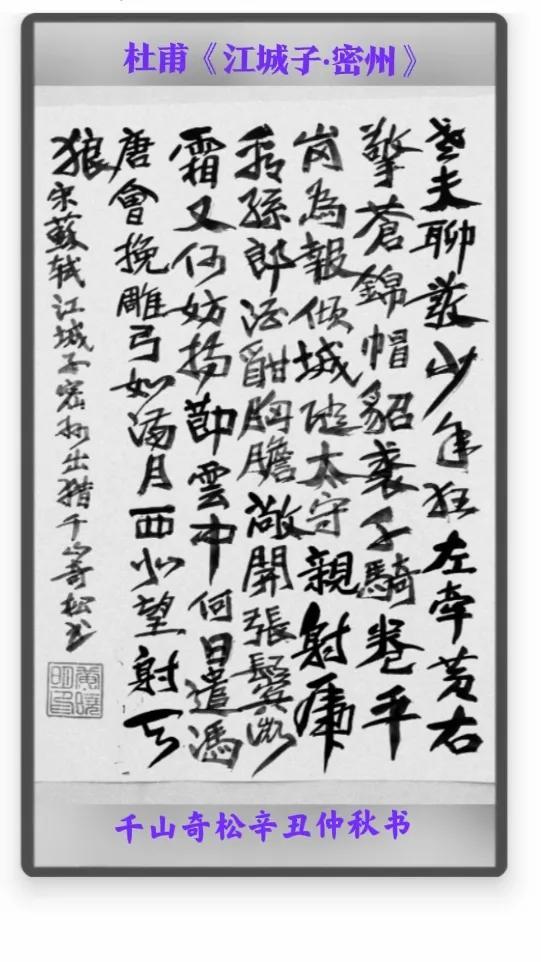 杜甫《江城子·密州》
老夫聊發少年狂左牽黄右
擎蒼錦帽貂裘千騎卷平
岗為報倾城随太守親射虎
看孫郎酒酣胸膽敞開張鬢微
霜又何妨持節雲中何日遣馮
唐會挽雕弓如满月西北望射天
狼宋蘇轼江城子密州出猎千山奇松书
千山奇松辛丑仲秋书